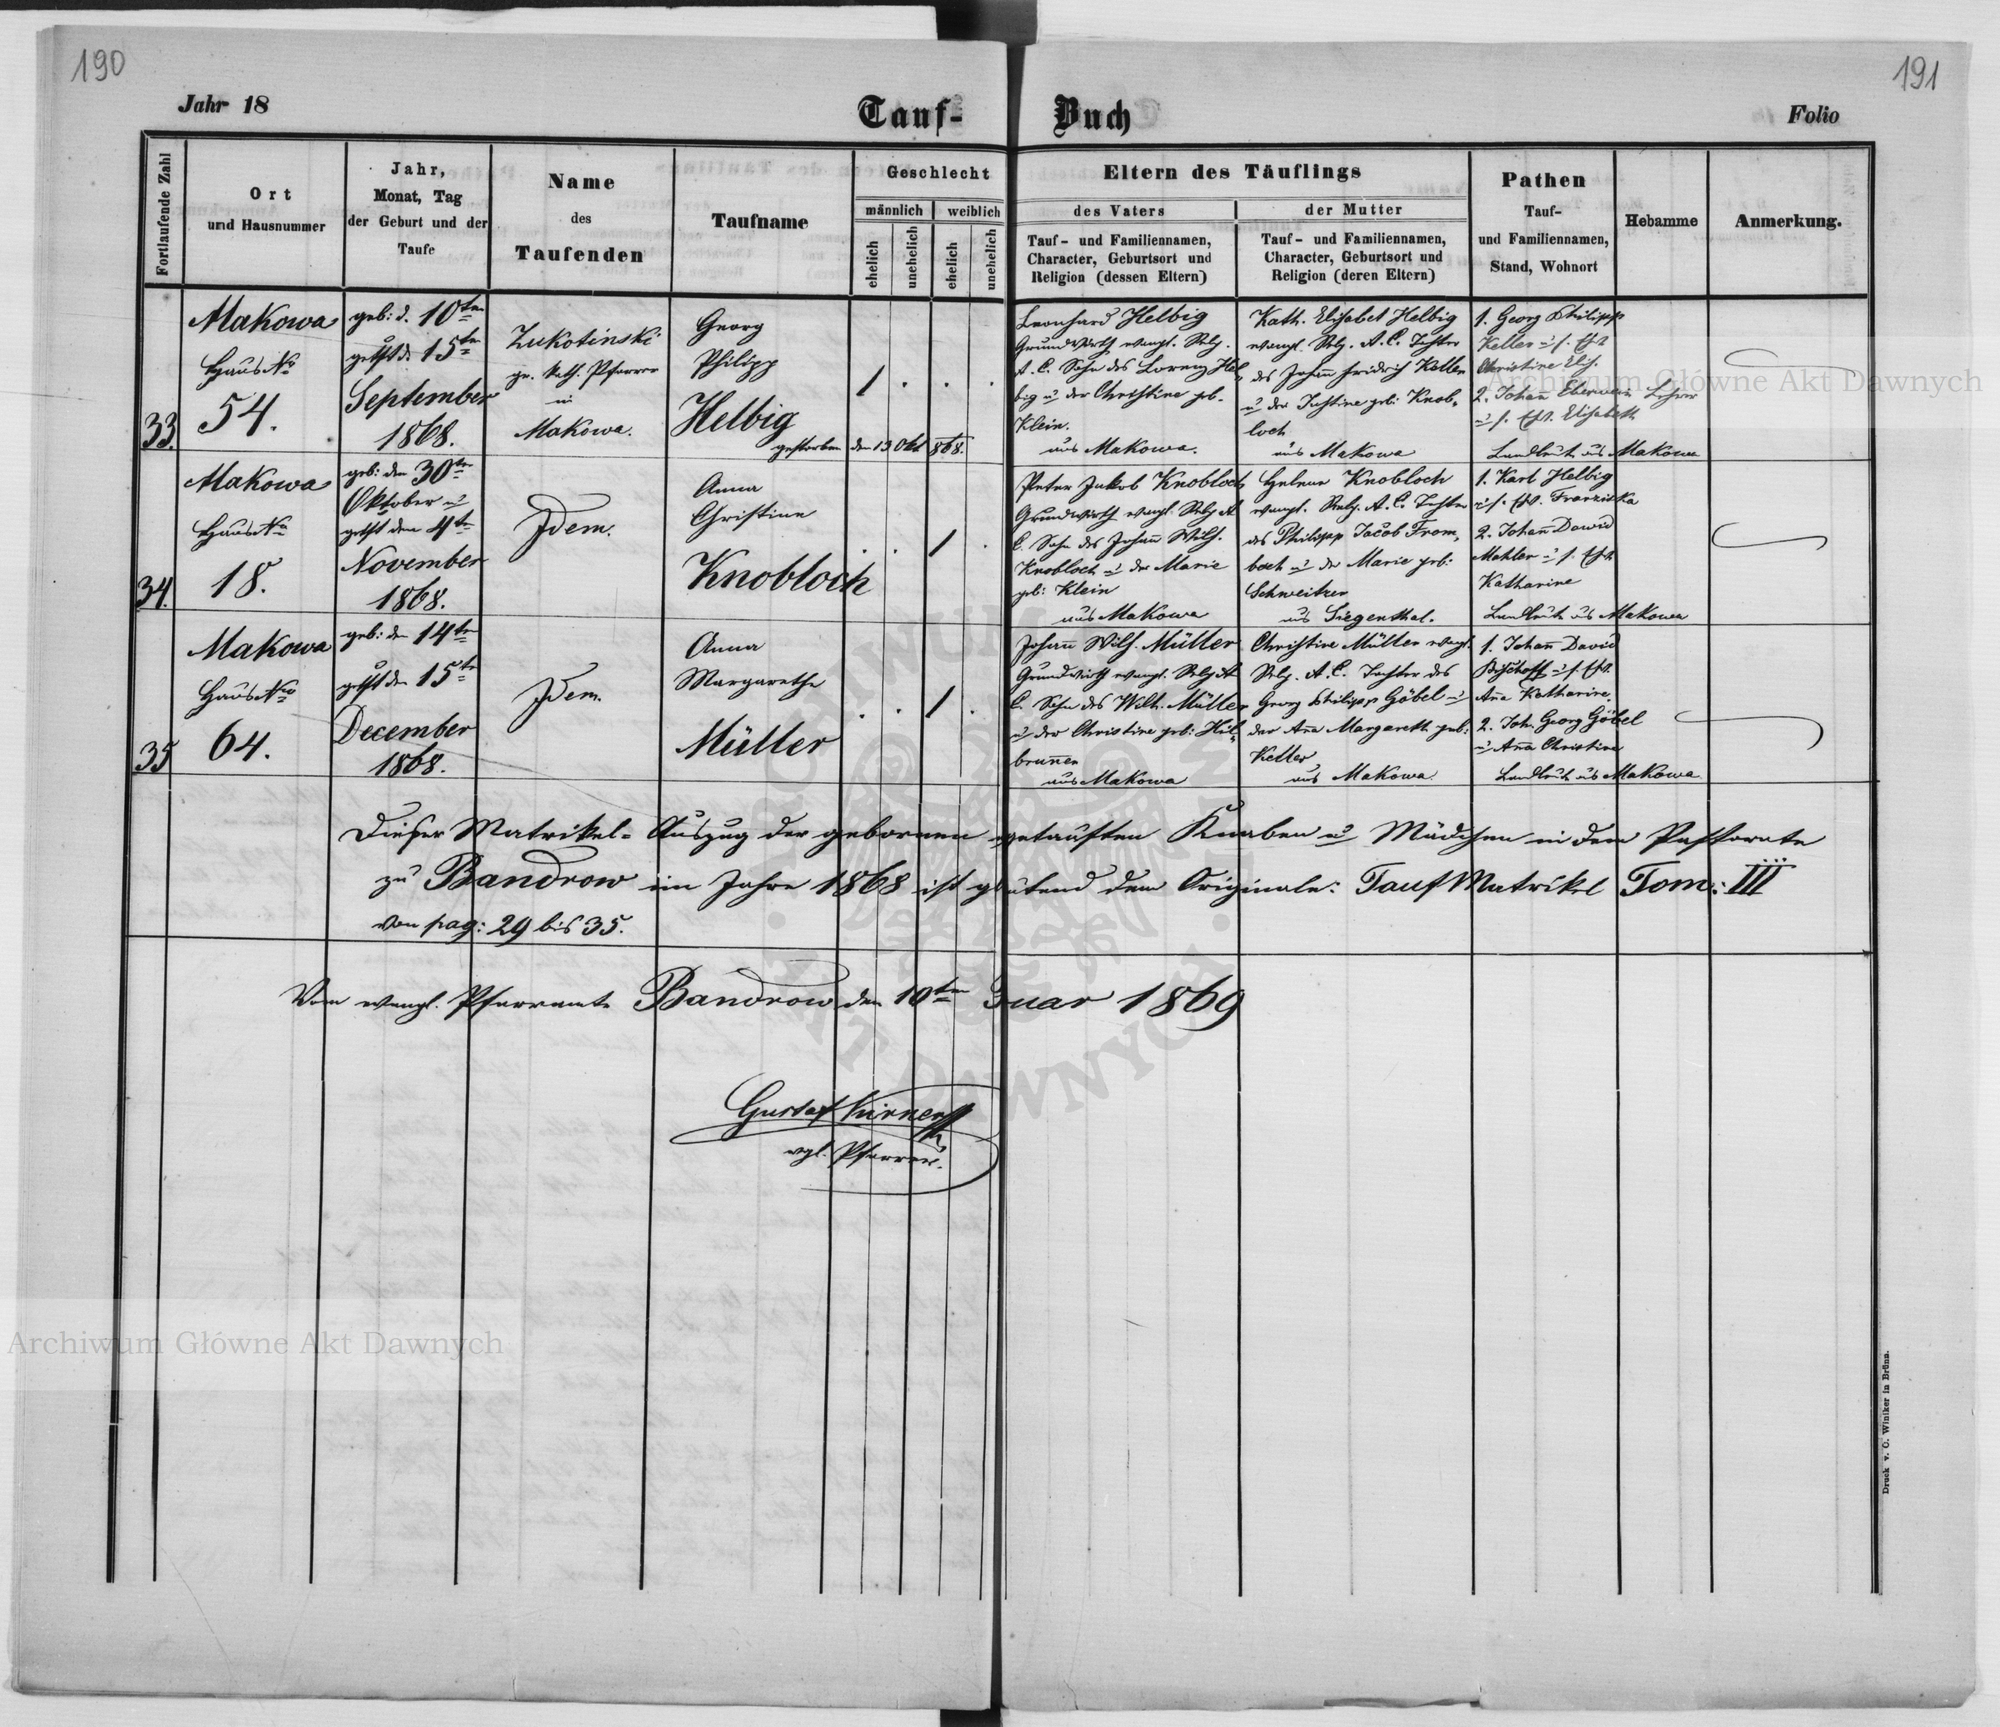 190
191
Jahr 18
Tauf-
Buch
Folio
Fortlaufende Zahl
Ort
und Hausnummer
Jahr,
Monat, Tag
der Geburt und der
Taufe
Name
des
Taufenden
Taufname
Geschlecht
männlich
weiblich
ehelich
unehelich
ehelich
unehelich
Eltern des Täuflings
des Vaters
Tauf- und Familiennamen,
Character, Geburtsort und
Religion (dessen Eltern)
der Mutter
Tauf- und Familiennamen,
Character, Geburtsort und
Religion (deren Eltern)
Pathen
Tauf-
und Familiennamen,
Stand, Wohnort
Hebamme
Anmerkung.
33.
Makowa
Haus No
54.
geb: d. 10ten
getft d. 15ten
September
1868.
Zukotinski
gr. kath. Pfarrer
in
Makowa.
Georg
Philipp
Helbig
gestorben den 13 Okt 868.
1 . . .
Leonhard Helbig
Grundwirth evangl. Relg.
A. C. Sohn des Lorenz Hel-
big u der Christine geb.
Klein.
aus Makowa.
Kath. Elisabet Helbig
evangl. Relg. A. C. Tochter
des Johann Fridrich Keller
u der Justine geb: Knob-
loch
aus Makowa
1. Georg Philipp
Keller u s. Eh
Christine Elis.
2. Johann Eberwein Lehrer
u s. Eh. Elisabeth
Landleute aus Makowa
34.
Makowa
Haus No
18.
geb: den 30ten
Oktober u
getft den 4ten
November
1868.
Idem.
Anna
Christine
Knobloch
. . 1 .
Peter Jakob Knobloch
Grundwirth evangl. Relg A
C. Sohn des Johann Wilh.
Knobloch u der Marie
geb: Klein
aus Makowa
Helene Knobloch
evangl. Relg. A. C. Tochter
des Philipp Jacob From-
bach u der Marie geb:
Schweitzer
aus Siegenthal.
1. Karl Helbig
u s. Franziska
2. Johann Dawid
Mohler u s. Eh
Katharine
Landleute aus Makowa
35
Makowa
Haus No
64.
geb: den 14ten
getft den 15ten
December
1868.
Idem.
Anna
Margarethe
Müller
. . 1 .
Johann Wilh. Müller
Grundwirth evangl. Relg A
C. Sohn des Wilh. Müller
u der Christine geb: Hil-
brunnen
aus Makowa
Christine Müller evngl.
Relg. A. C. Tochter des
Georg Philipp Göbel u
der Ana Margareth geb:
Keller
aus Makowa.
1. Johann David
Bischoff u s. Eh.
Ana Katharine
2. Joh. Georg Göbel
u Ana Christine
Landleute aus Makowa
Dieser Matrikel-Auszug der gebornen getauften Knaben u Mädchen in dem Pastorate
zu Bandrow im Jahre 1868 ist gleichlautend dem Originale: Tauf Matrikel Tom: III
von pag: 29 bis 35.
Vom evangl. Pfarramte Bandrow den 10ten Januar 1869
Gustaf
evgl. Pfarrer.
Archiwum Główne Akt Dawnych
Archiwum Główne Akt Dawnych
Druck v. C. Winiker in Brünn.